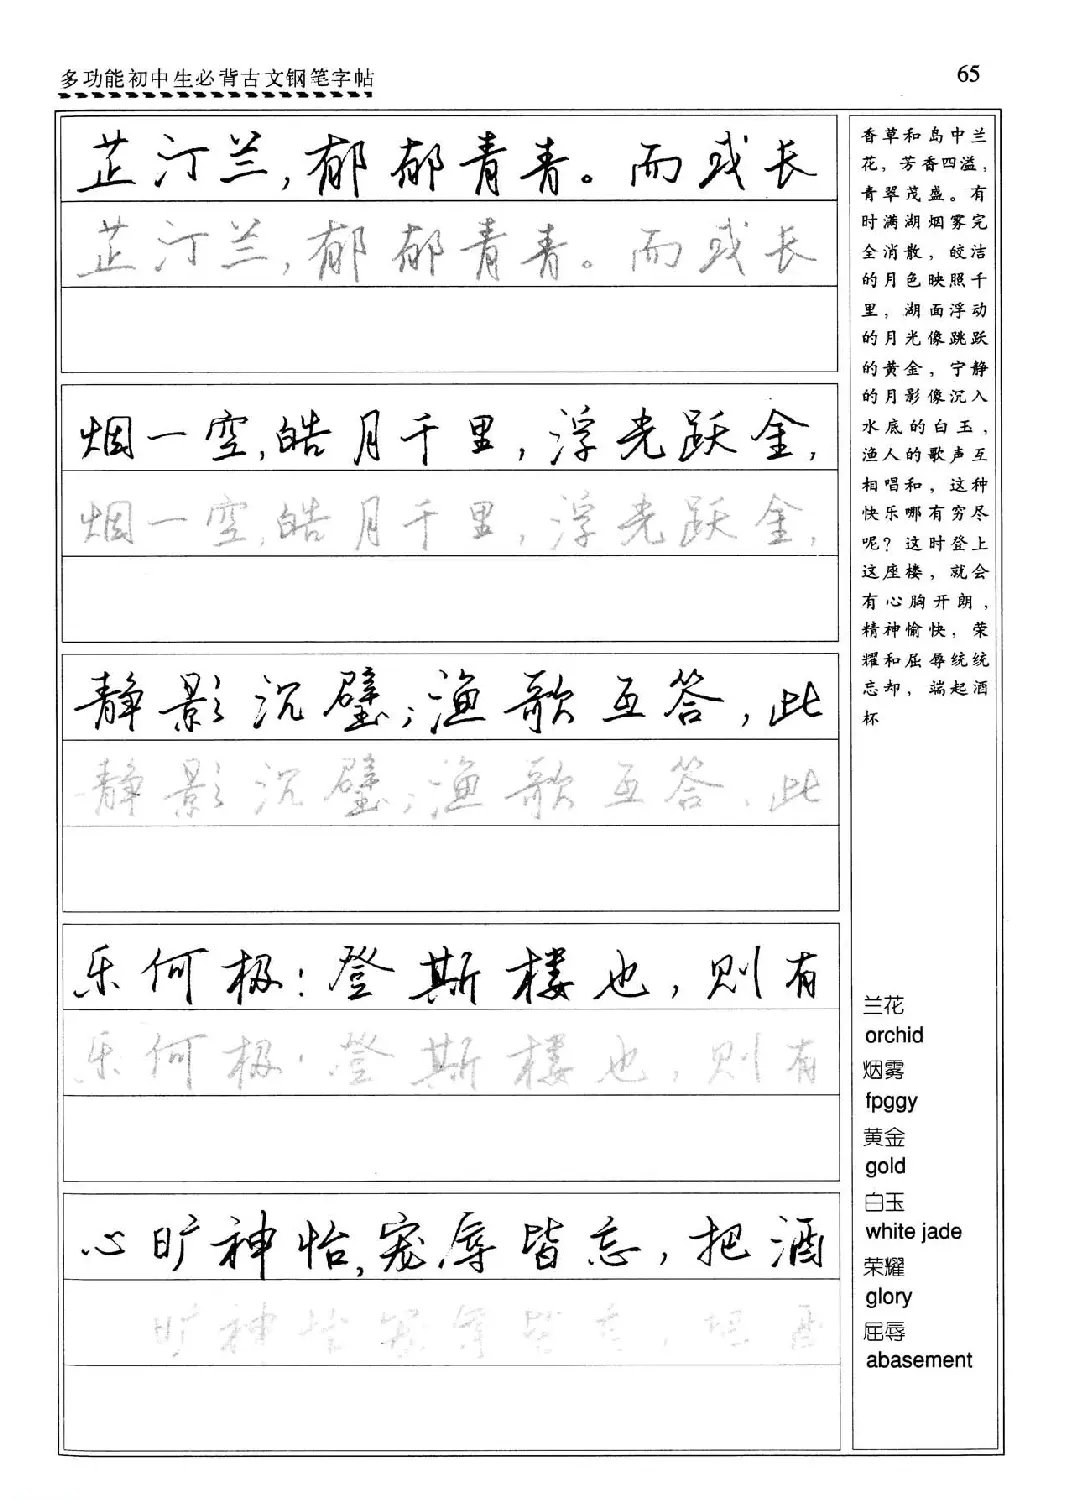 多功能初中生必背古文钢笔字帖
65
芷汀兰,郁郁青青。而或长
芷汀兰,郁郁青青。而或长
烟一空,皓月千里,浮光跃金,
烟一空,皓月千里,浮光跃金,
静影沉璧;渔歌互答,此
静影沉璧;渔歌互答,此
乐何极!登斯楼也,则有
乐何极!登斯楼也,则有
心旷神怡,宠辱皆忘,把酒
旷神怡 宠辱皆忘,把酒
香草和岛中兰
花,芳香四溢,
青翠茂盛。有
时满湖烟雾完
全消散,皎洁
的月色映照千
里,湖面浮动
的月光像跳跃
的黄金,宁静
的月影像沉入
水底的白玉,
渔人的歌声互
相唱和,这种
快乐哪有穷尽
呢?这时登上
这座楼,就会
有心胸开朗,
精神愉快,荣
耀和屈辱统统
忘却,端起酒
杯
兰花
orchid
烟雾
fpggy
黄金
gold
白玉
white jade
荣耀
glory
屈辱
abasement